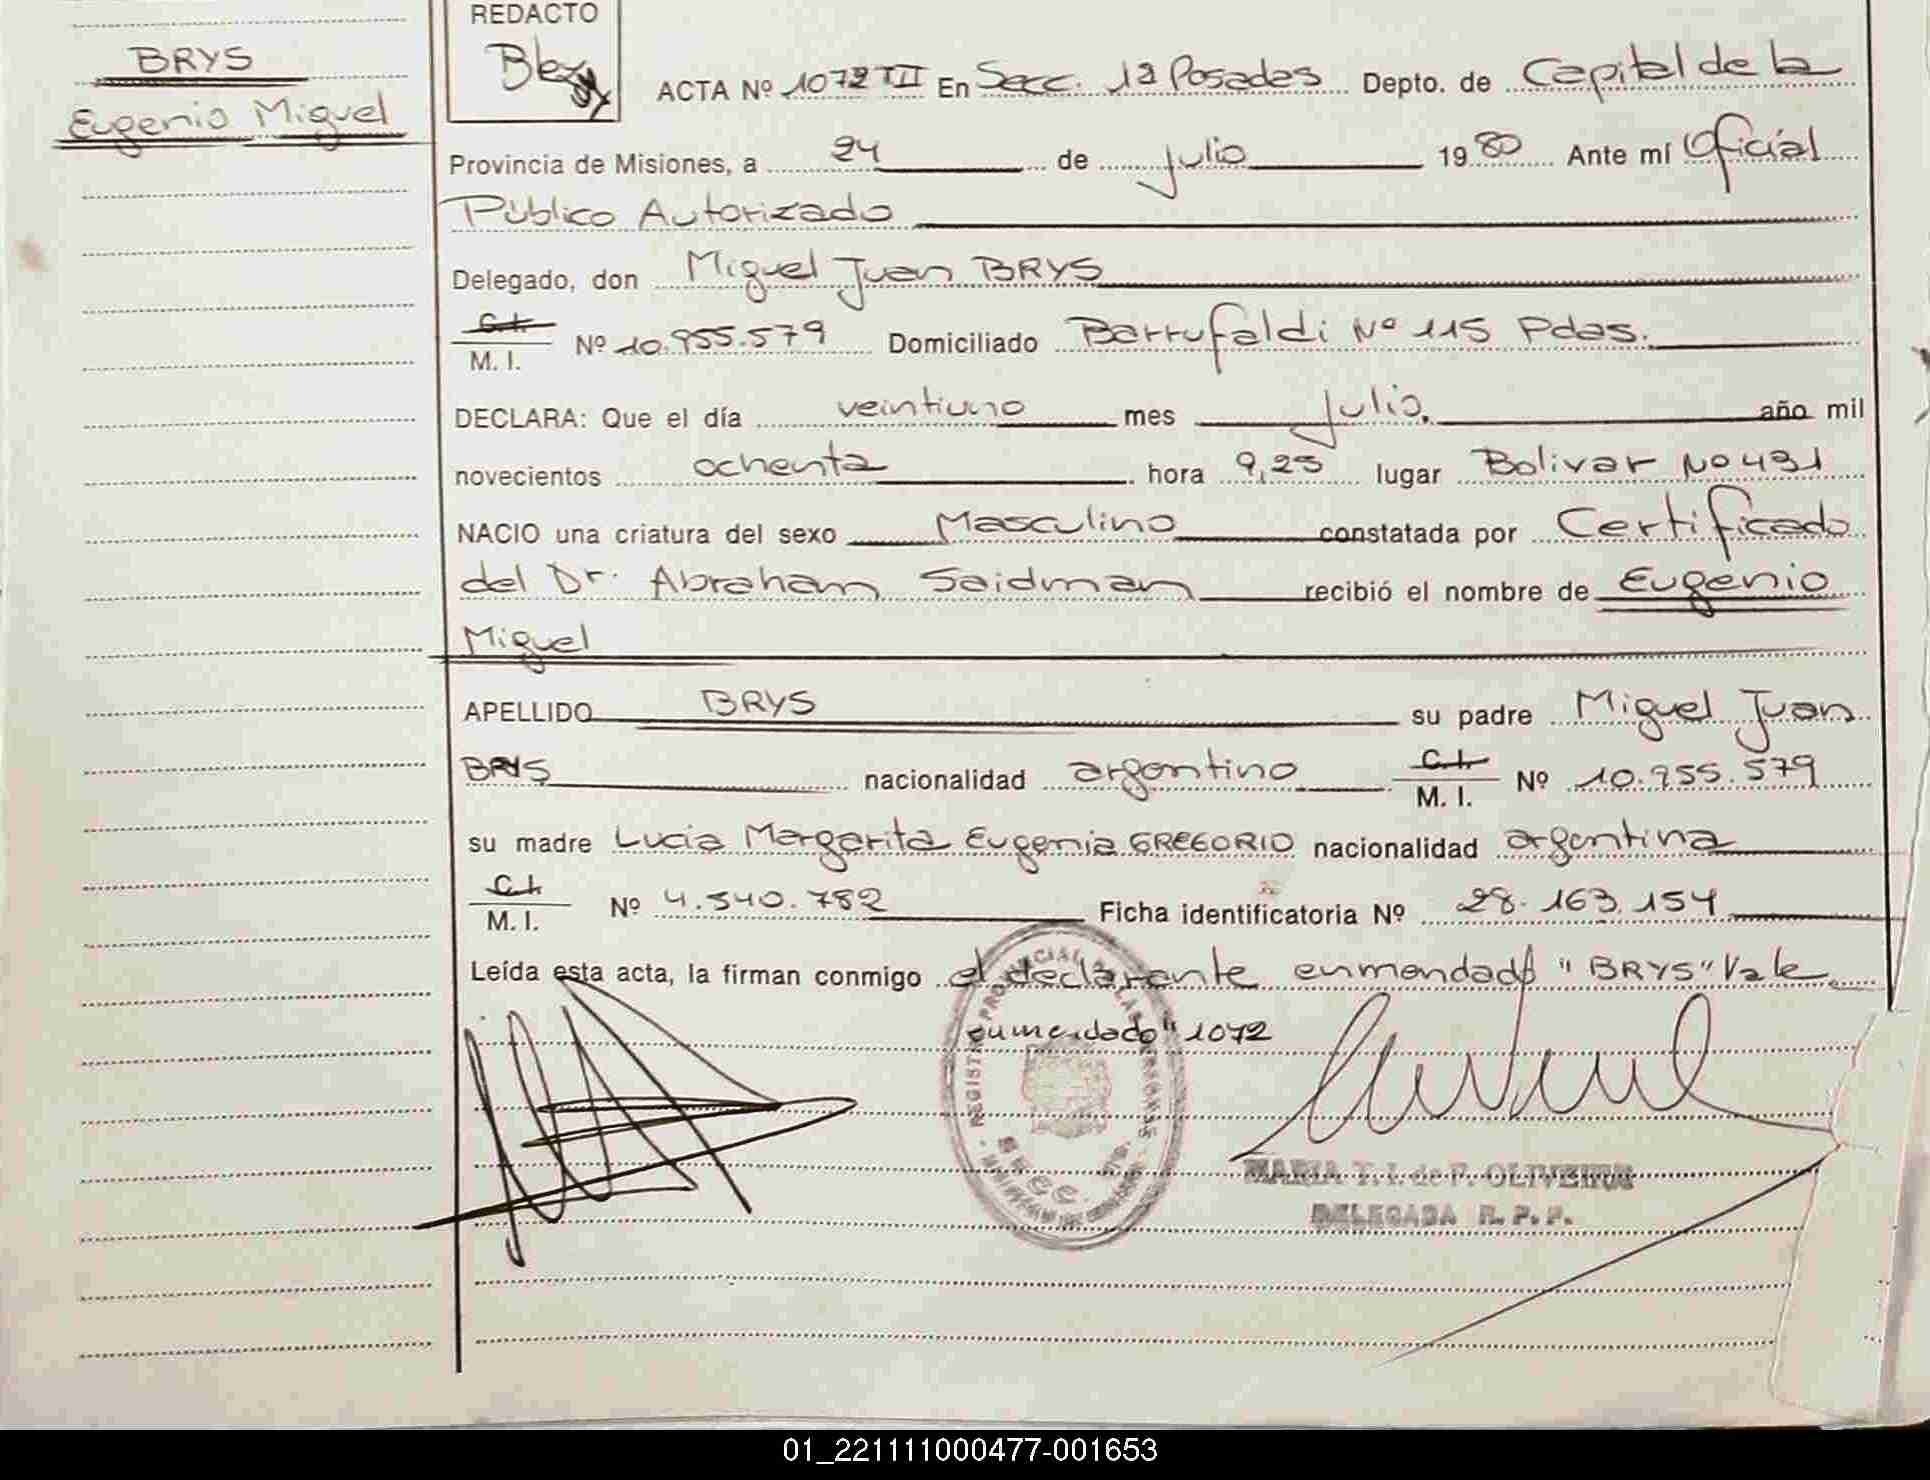 BRYS
Eugenio Miguel
REDACTO
ACTA Nº 1072 TII En Secc. 1a Posadas Depto. de Capital de la
Provincia de Misiones, a 24 de julio 1980 Ante mí Oficial
Público Autorizado
Delegado, don Miguel Juan BRYS
C.I. M. I. Nº 10.955.579 Domiciliado Barrufaldi Nº 115 Pdas.
DECLARA: Que el día veintiuno mes Julio. año mil
novecientos ochenta hora 9,25 lugar Bolivar Nº 491
NACIO una criatura del sexo Masculino constatada por Certificado
del Dr. Abraham Saidman recibió el nombre de Eugenio
Miguel
APELLIDO BRYS su padre Miguel Juan
BRYS nacionalidad argentino C.I. M. I. Nº 10.955.579
su madre Lucia Margarita Eugenia GREGORIO nacionalidad argentina
C.I. M. I. Nº 4.540.782 Ficha identificatoria Nº 28.163.154
Leída esta acta, la firman conmigo el declarante enmendado "BRYS" Vale
enmendado "1072
REGISTRO PROVINCIAL DE LAS PERSONAS
SECC.
MARIA T. I. de F. OLIVEIROS
DELEGADA R. P. P.
01_221111000477-001653